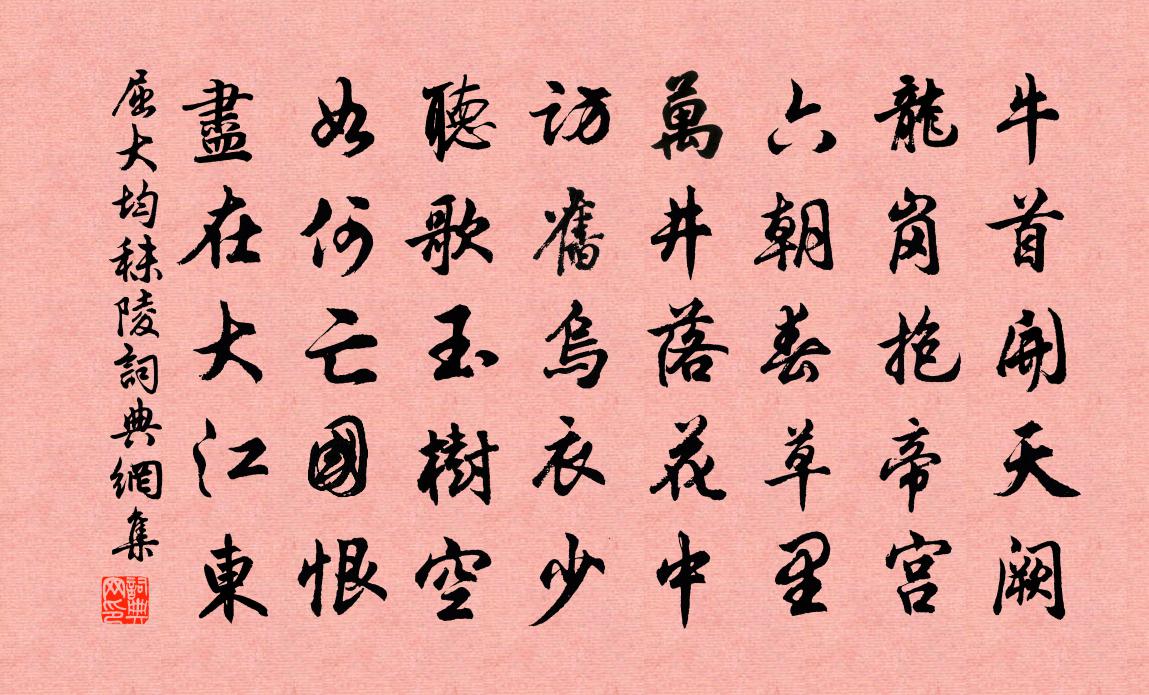 牛首開天闕
龍崗抱帝宮
六朝春草里
萬井落花中
訪舊烏衣少
聽歌玉樹空
如何亡國恨
盡在大江東
屈大均秣陵詞典網集
詞典網印